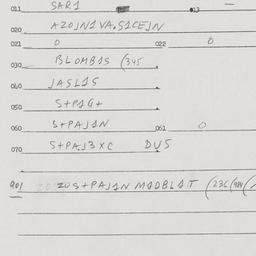 011 SAR1 013
020 AZOJN1VA.S1CEJN
021 0 022 8
030 BLOMB1S (345
040 JASL1S
050 S+P1G+
060 S+PAJ1N 061 0
070 S+PAJ3XC DUS
901 ZUS+PAJ1N M1DBL1T